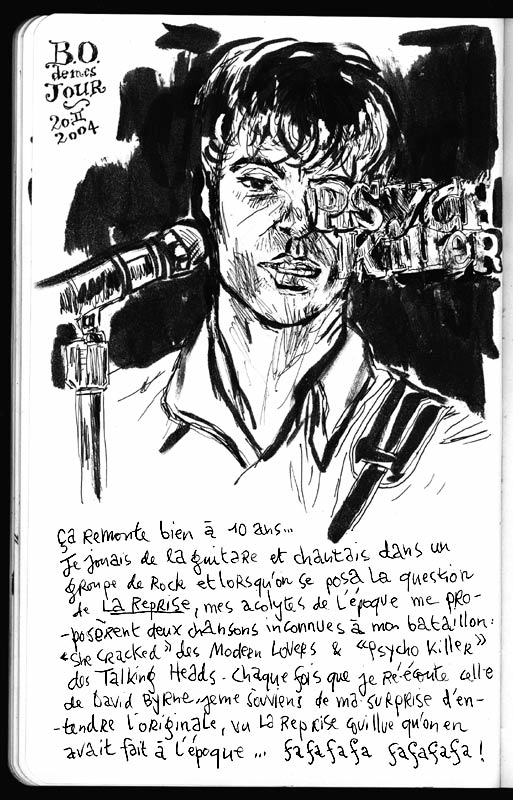 B.O.
de mes
JOUR
20 II
2004
PSYCH
Killer
ça Remonte bien à 10 ans...
Je jouais de la guitare et chantais dans un
groupe de Rock et lorsqu'on se posa la question
de La Reprise, mes acolytes de l'époque me pro-
-posèrent deux chansons inconnues à mon bataillon:
"She Cracked" des Modern Lovers & "Psycho Killer"
des Talking Heads. Chaque fois que je Réécoute celle
de David Byrne, je me souviens de ma surprise d'en-
-tendre l'originale, vu La Reprise qu'on en
avait fait à l'époque ... fafafafa fafafafa!